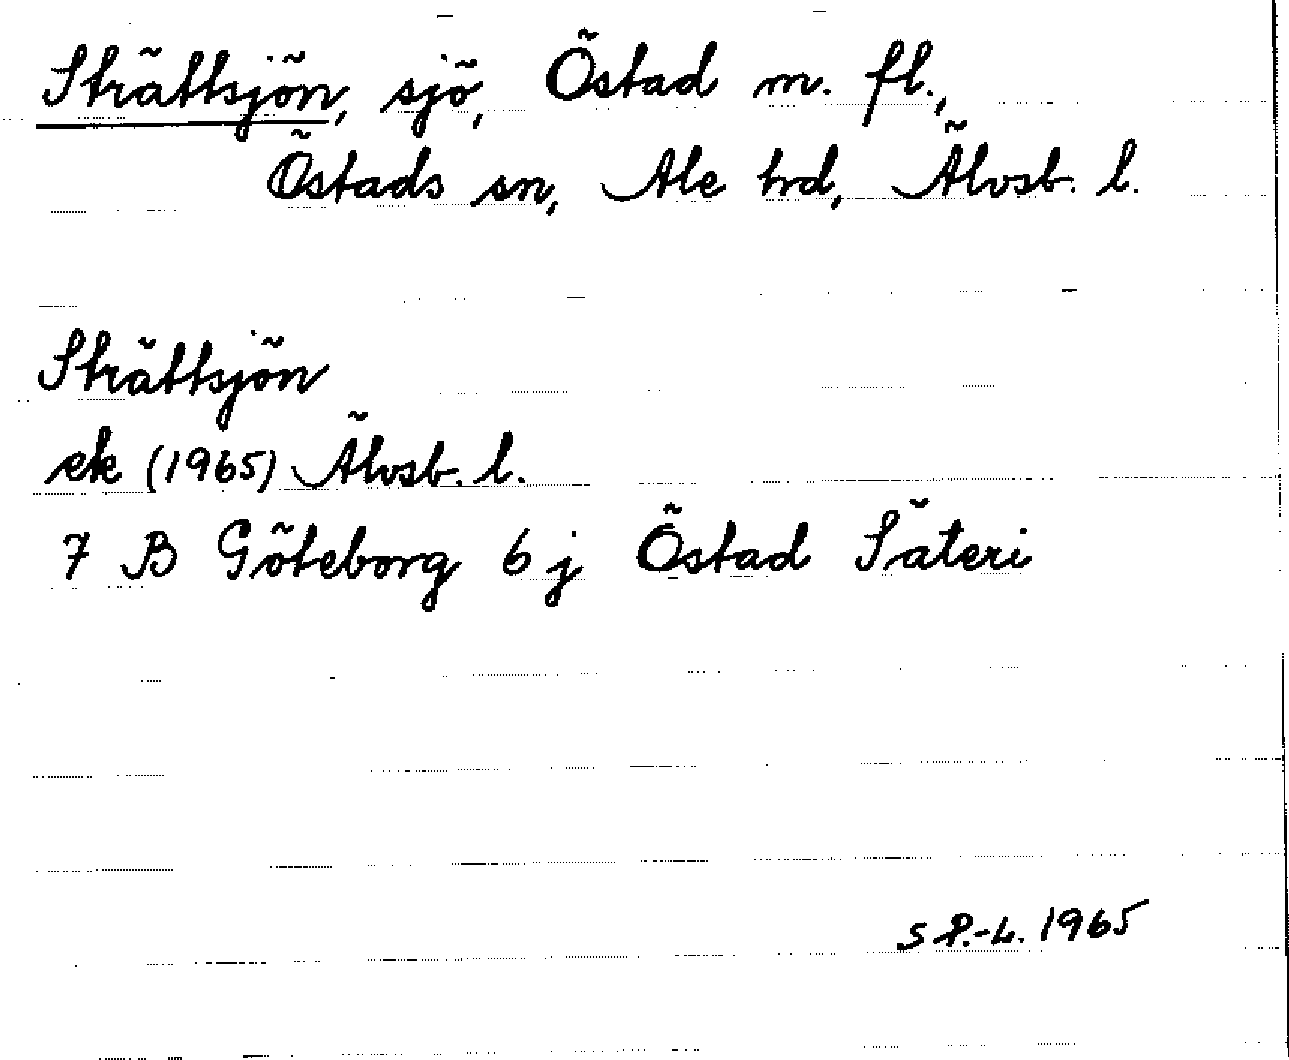 Strättsjön, sjö, Östad m. fl.,
Östads sn, Ale hrd, Älvsb. l.
Strättsjön
ek (1965) Älvsb. l.
7 B Göteborg 6 j Östad Säteri
S P.-L. 1965